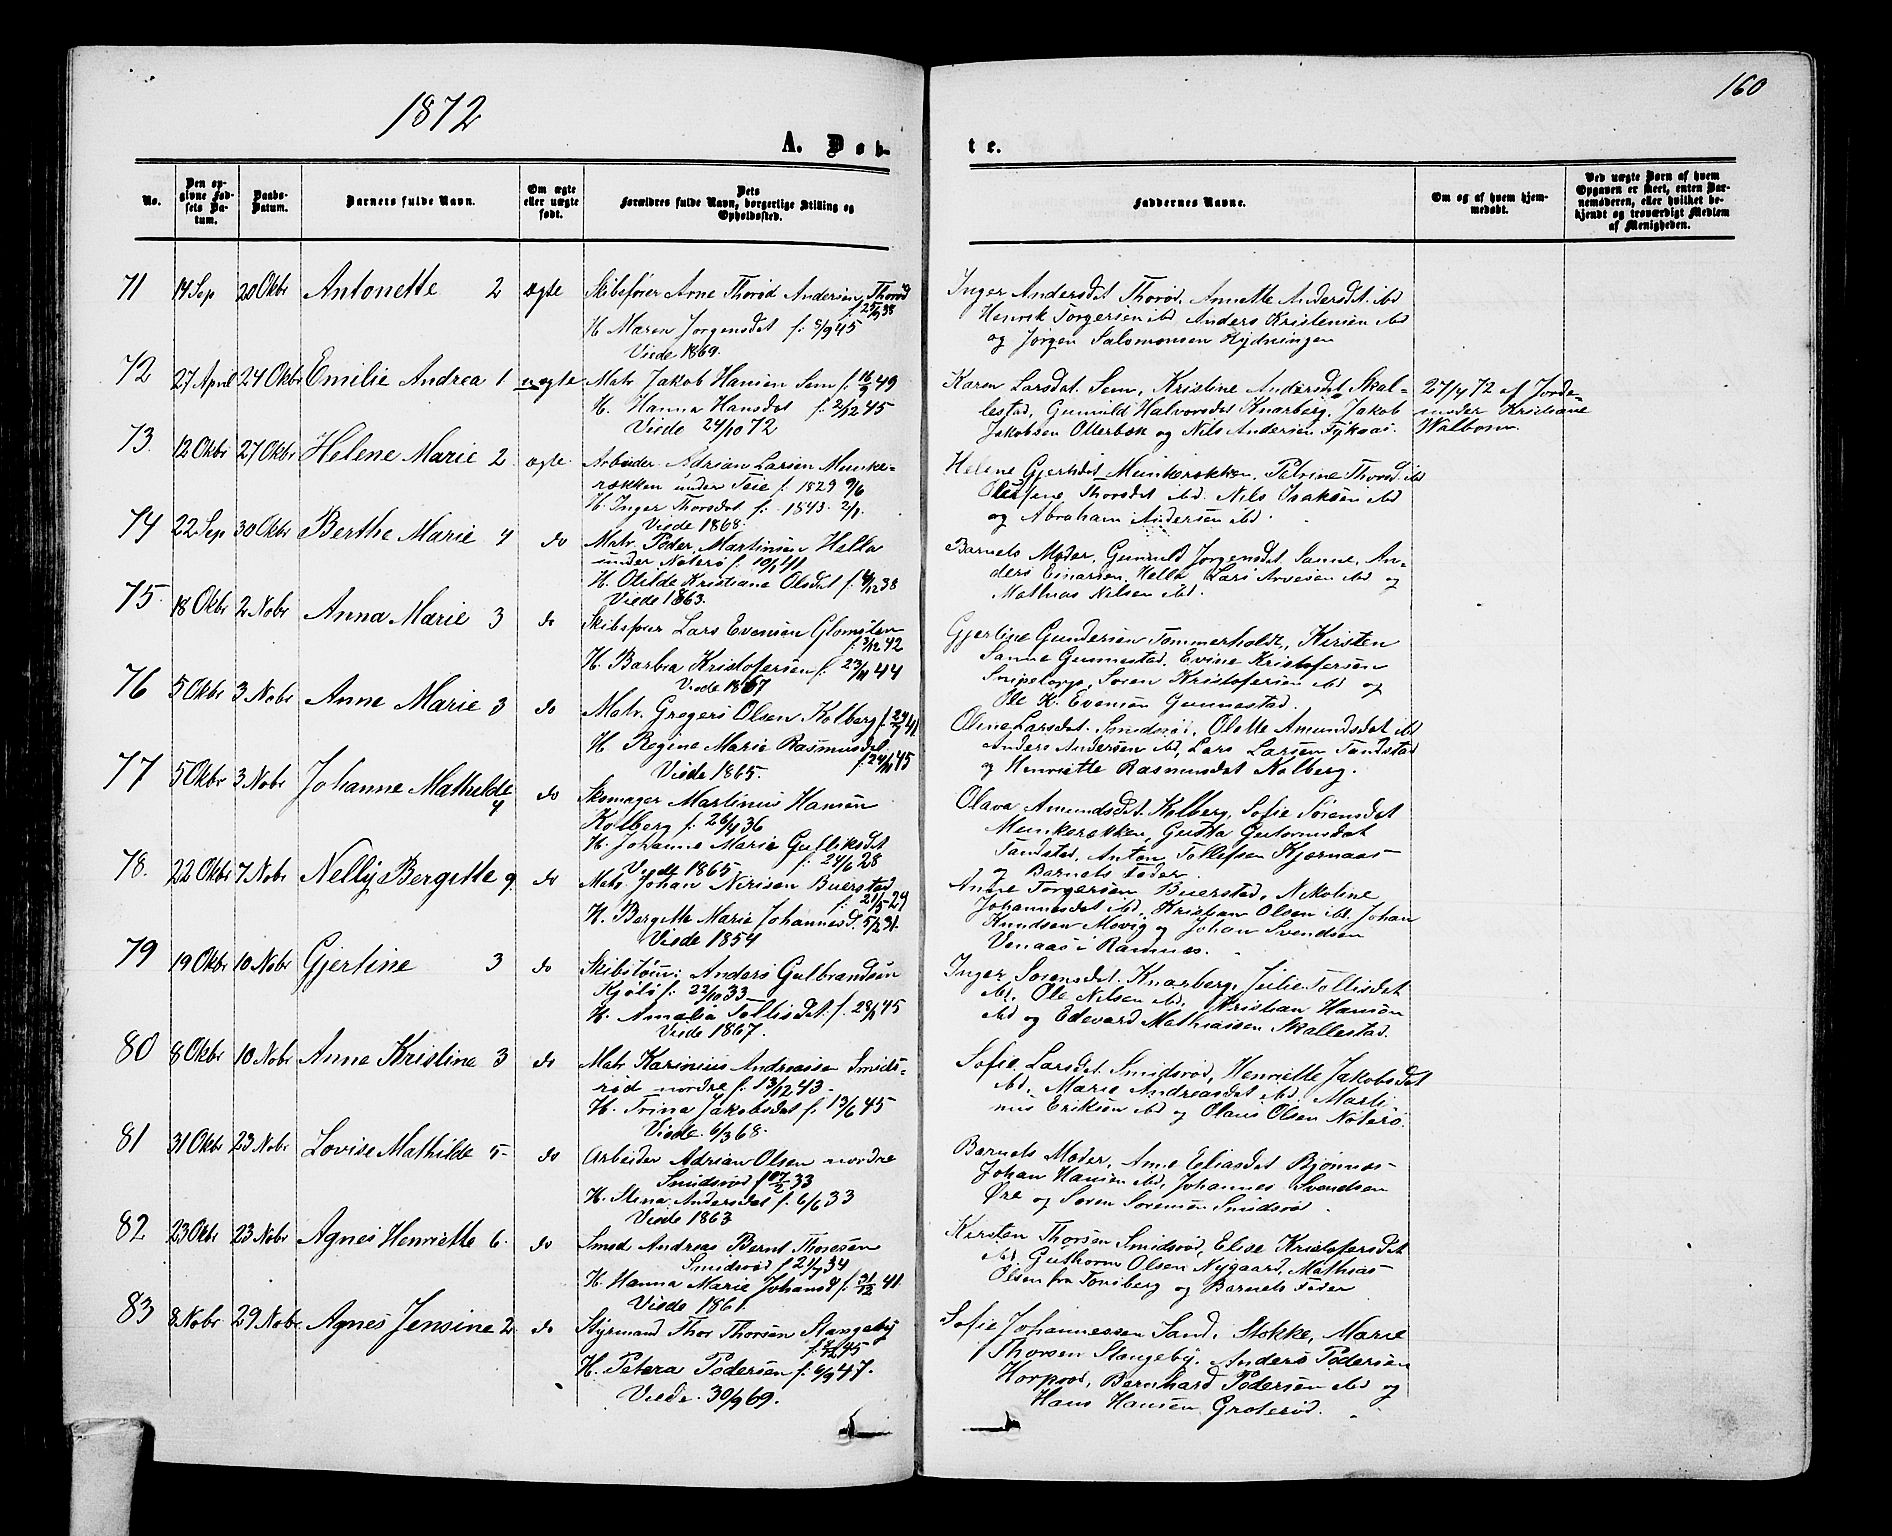 1872
160
A. Døb-
te.
No.
Den op-
givne Fød-
sels Da-
tum.
Daabs-
Datum.
Barnets fulde Navn.
Om ægte
eller uægte
født.
Dets
Forældres fulde Navn, borgerlige Stilling og
Opholdssted.
Faddernes Navne.
Om og af hvem hjem-
medøbt.
Ved uægte Børn af hvem
Opgaven er skeet, enten Bar-
nemoderen, eller hvilket be-
kjendt og troværdigt Medlem
af Menigheden.
71 14 Sep 20 Okbr Antonette 2 ægte Skibsfører Arne Thorød Andersen, Thorød
f. 25/9 38
H. Maren Jørgensdat f. 8/9 45
Viede 1869.
Inger Andersdat Thorød, Annette Andersdat. ibd
Henrik Torgersen ibd Anders Kristensen ibd
og Jørgen Salomonsen
72 27 April 24 Okbr Emilie Andrea 1 uægte Matr. Jakob Hansen Sem f. 16/9 49
H. Hanna Hansdat f. 2/12 45
Viede 24/10 72
Karen Larsdat. Sem, Kristine Andersdat Skal-
lestad, Gunnild Halvorsdat Knarberg, Jakob
Jakobsen Otterbek og Nils Andersen
27/4 72 af Jorde-
moder Kristiane
Walbom.
73. 12 Okbr 27 Okbr Helene Marie 2 ægte Arbeider Adrian Larsen Munke-
rekken under Teie f. 1829 9/6
H. Inger Thorsdat f. 1843. 2/1.
Viede 1868.
Helene Gjertsdat Munkerekken, Petrine Thorsd. ibd
Thorsdat ibd. Nils Isaksen ibd
og Abraham Andersen ibd.
74 22 Sep 30 Okbr Berthe Marie 4 do Matr. Peder Martinsen Hella
under Nøterø f. 19/1 41
H. Otilde Kristiane Olsdat f. 12 38
Viede 1863.
Barnets Moder, Gunnild Jørgensdat Sanne, An-
ders Einarsen Hella Lars Arvesen ibd og
Mathias Nilsen ibd.
75. 18 Okbr 2 Nobr Anna Marie 3 do Skibsfører Lars Evensen Glomstein
f. 3/12 42
H. Barbra Kristofersen f. 23/11 44
Viede 1867
Gjerline Gundersen Tømmerholdt, Kirsten
Sanne Gunnestad, Evine Kristofersen
Snipetorp, Søren Kristofersen ibd og
Ole K. Evensen Gunnestad.
76 5 Okbr 3 Nobr Anne Marie 3 do Matr. Gregers Olsen Kolberg f. 24/7 41
H. Regine Marie Rasmusdat
f. 24/11 45
Viede 1865.
Oline Larsdat Smidsrød, Olette Amundsdat ibd
Anders Andersen ibd, Lars Larsen Tandstad
og Henriette Rasmusdat Kolberg.
77 5 Okbr 3 Nobr Johanne Mathilde
4 do Skomager Martinus Hansen
Kolberg f. 26/4 36
H. Johanne Marie Gulliksdat
f. 24/6 28
Viede 1865
Olava Amundsdat Kolberg, Sofie Sørensdat
Munkerekken, Gutta Guttormsdat
Tandstad, Anton Tollefsen Kjærnaas
og Barnets Fader.
78. 22 Okbr 7 Nobr Nelly Bergitte 9. do Matr. Johan Nirisen Buerstad
f. 21/5 29
H. Bergitte Marie Johannesd. 5/12 31.
Viede 1854
Anne Torgersen Buerstad, Nikoline
Johannesdat ibd, Kristian Olsen ibd. Johan
Knudsen Movig og Johan Svendsen
Venaas i Ramnæs.
79 19 Okbr 10 Nobr Gjertine 3 do Skibstøm: Anders Gulbrandsen
Kjøløs f. 22/10 33
H. Amalia Tollisdat f. 28/1 45
Viede 1867.
Inger Sørensdat. Knarberg, Julie Tollisdat
ibd. Ole Nilsen ibd, Kristian Hansen
ibd og Edevard Mathiasen Skallestad.
80 8 Okbr 10 Nobr Anne Kristine 3 do Matr. Karinius Andreassen Smids-
rød nordre f. 13/12 43.
H. Trina Jakobsdat f. 13/6 45
Viede. 6/3 68.
Sofie Larsdat Smidsrød, Henriette Jakobsdat
ibd. Marie Andreasdat ibd, Marti-
nus Eriksen ibd og Olaus Olsen Nøterø.
81 31 Okbr 23 Nobr Lovise Mathilde 5 do Arbeider Adrian Olsen nordre
Smidsrød f. 33
H. Stina Andersdat f. 6/6 33
Viede 1863
Barnets Moder, Anne Eliasdat Bjønnes
Johan Hansen ibd, Johannes Svendsen
Øre og Søren Sørensen Smidsrød.
82 23 Okbr 23 Nobr Agnes Henriette 6. do Smed Andreas Bernt Thoresen
Smidsrød f. 21/7 34
H. Hanna Marie Johansd f. 31/12 41.
Viede 1861.
Kirsten Thorsen Smidsrød, Elise Kristofersdat
ibd. Guthorm Olsen Nygaard, Mathias
Olsen fra Tønsberg og Barnets Fader
83 8 Nobr 29 Nobr Agnes Jensine 2 do Styrmand Thor Thorsen Stangeby
f. 12 45
H. Petera Pedersen f. 6/9 47.
Viede. 30/9 69.
Sofie Johannessen Sand, Stokke, Marie
Thorsen Stangeby, Anders Pedersen
Korpsrød, Bernhard Pedersen ibd og
Hans Hansen Groterød.